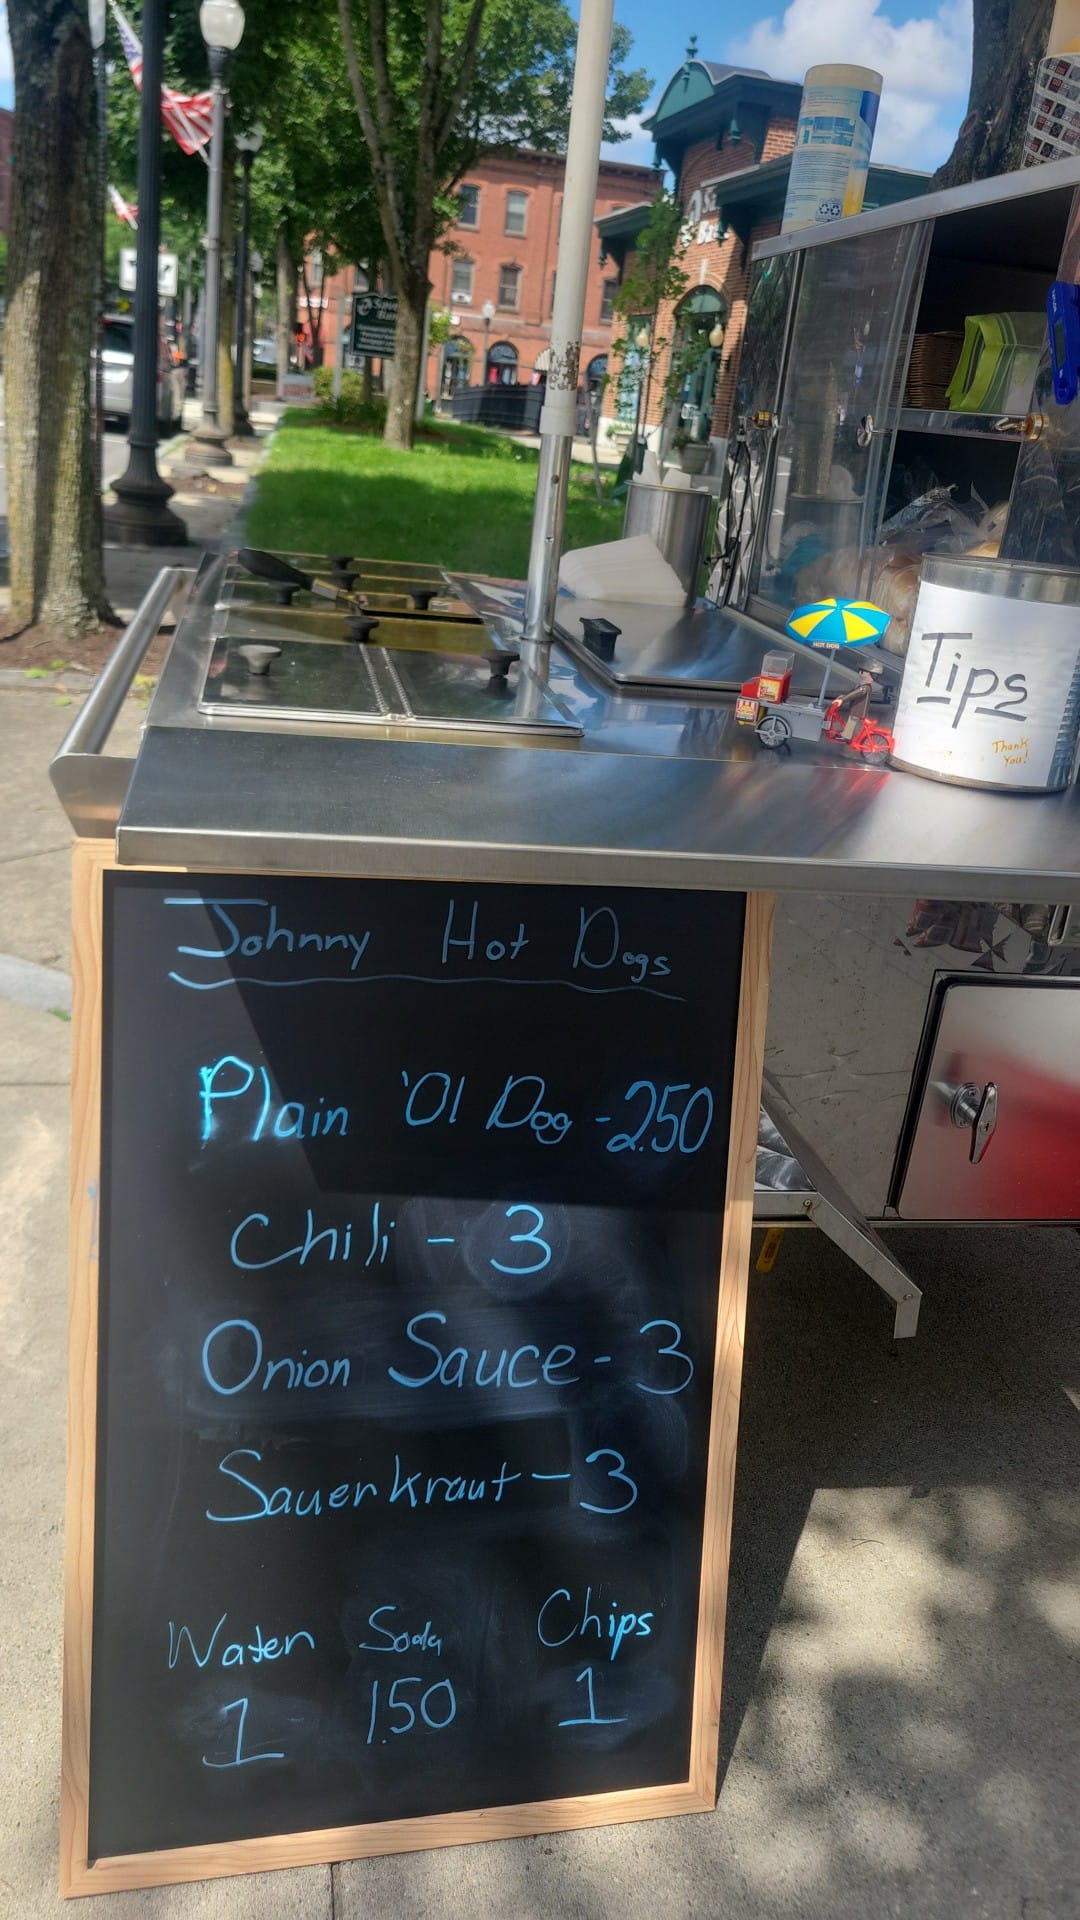 Tips
Thank
You!
HOT DOG
Johnny Hot Dogs
Plain 'Ol Dog - 2.50
Chili - 3
Onion Sauce - 3
Sauerkraut - 3
Water Soda Chips
1 1.50 1